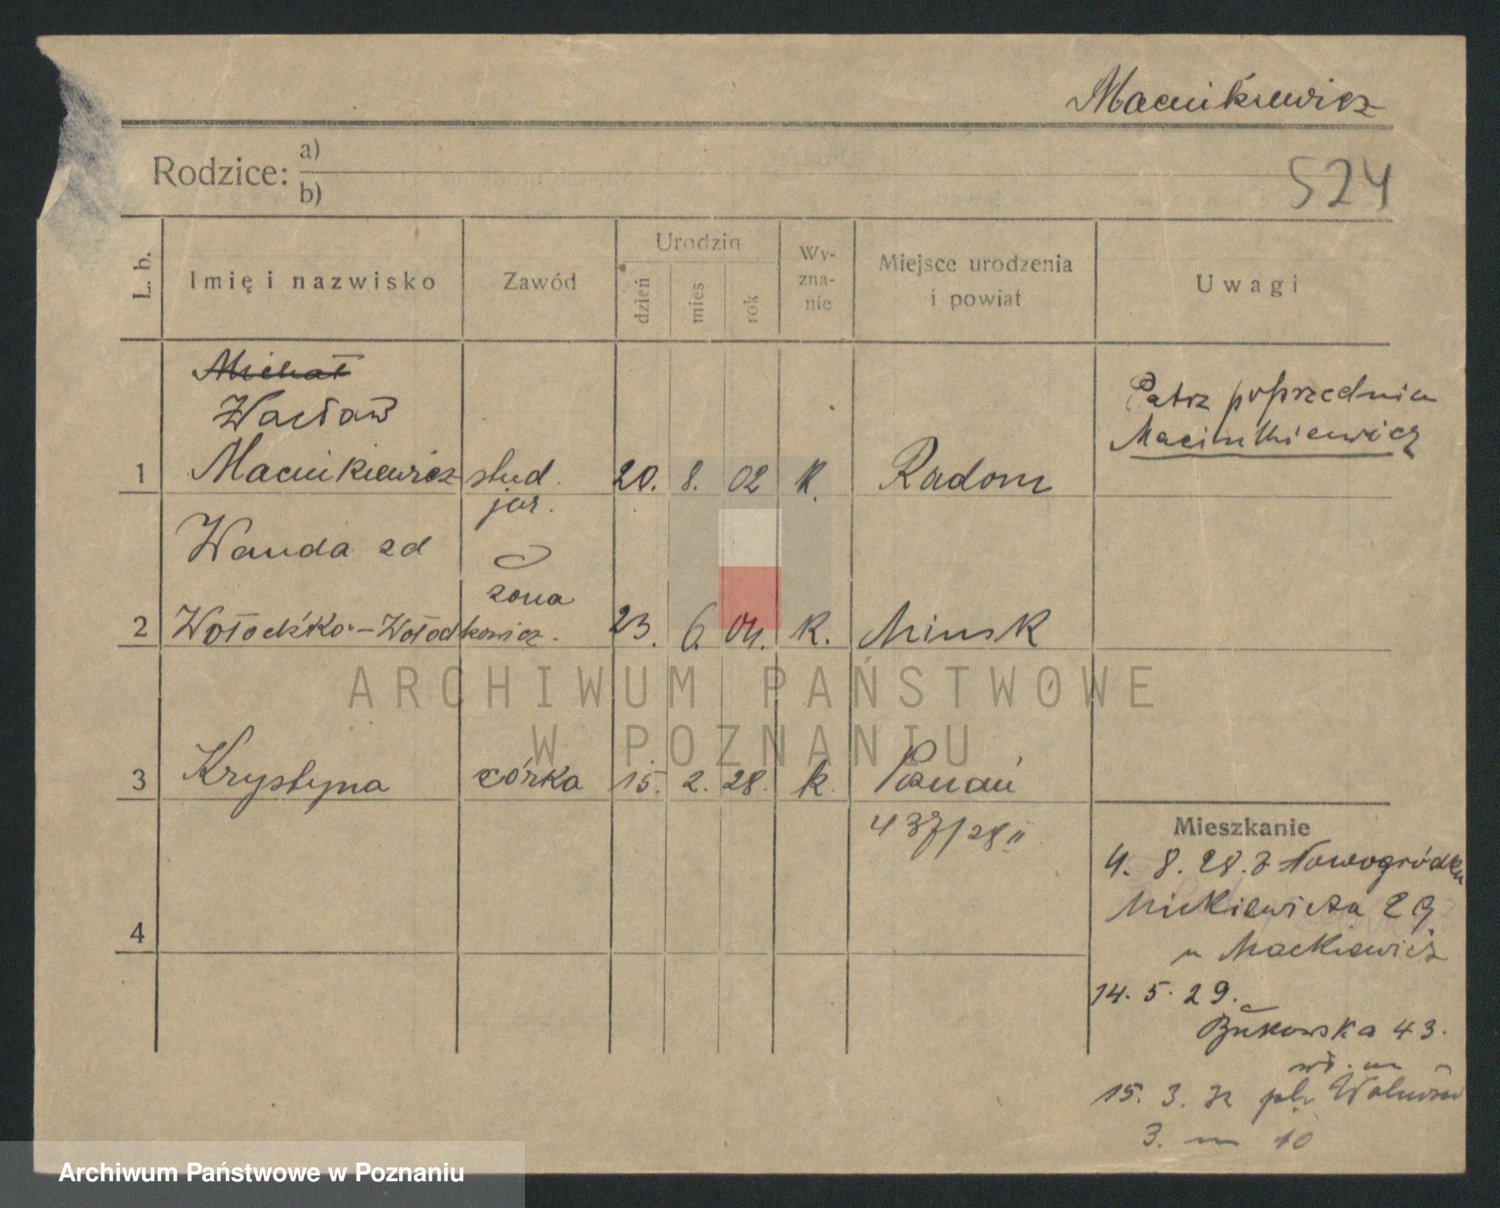 Macnikiewicz
Rodzice: a)
b)
524
L. b.
Imię i nazwisko
Zawód
Urodzin
dzień
mies
rok
Wy-
zna-
nie
Miejsce urodzenia
i powiat
Uwagi
Michał
Wacław
1 Macnikiewicz stud. 20. 8. 02 K. Radom
jur.
Patrz poprzednia
Macinkiewicz
Wanda zd
żona
2 Wołodźko-Wołodkowicz. 23. 6. 04. K. Minsk
3 Krystyna córka 15. 2. 28. k. Poznań
437/28 II
4
Mieszkanie
4. 8. 28. z Nowogródka
Mickiewicza 29
u Mackiewicz
14. 5. 29.
Bukowska 43.
15. 3. 32 pl. Wolności
3. m 10
ARCHIWUM PAŃSTWOWE
W POZNANIU
Archiwum Państwowe w Poznaniu